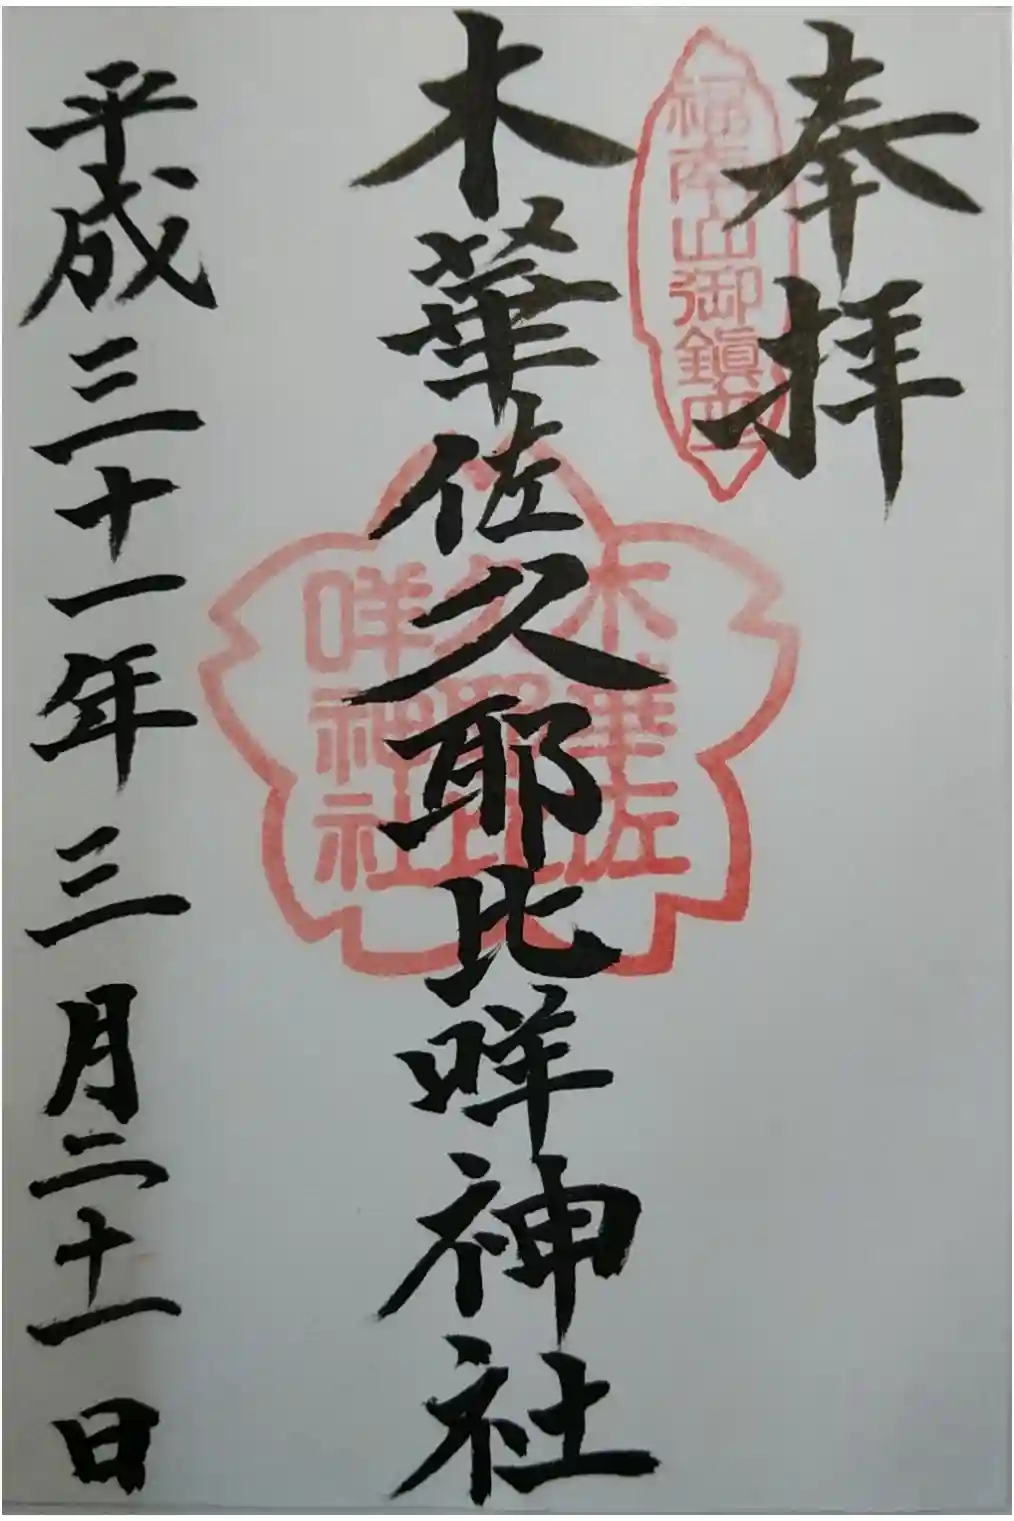 奉拝
福南山御鎮座
木華佐久耶比咩神社
木華佐
久耶比
咩神社
平成三十一年三月二十一日